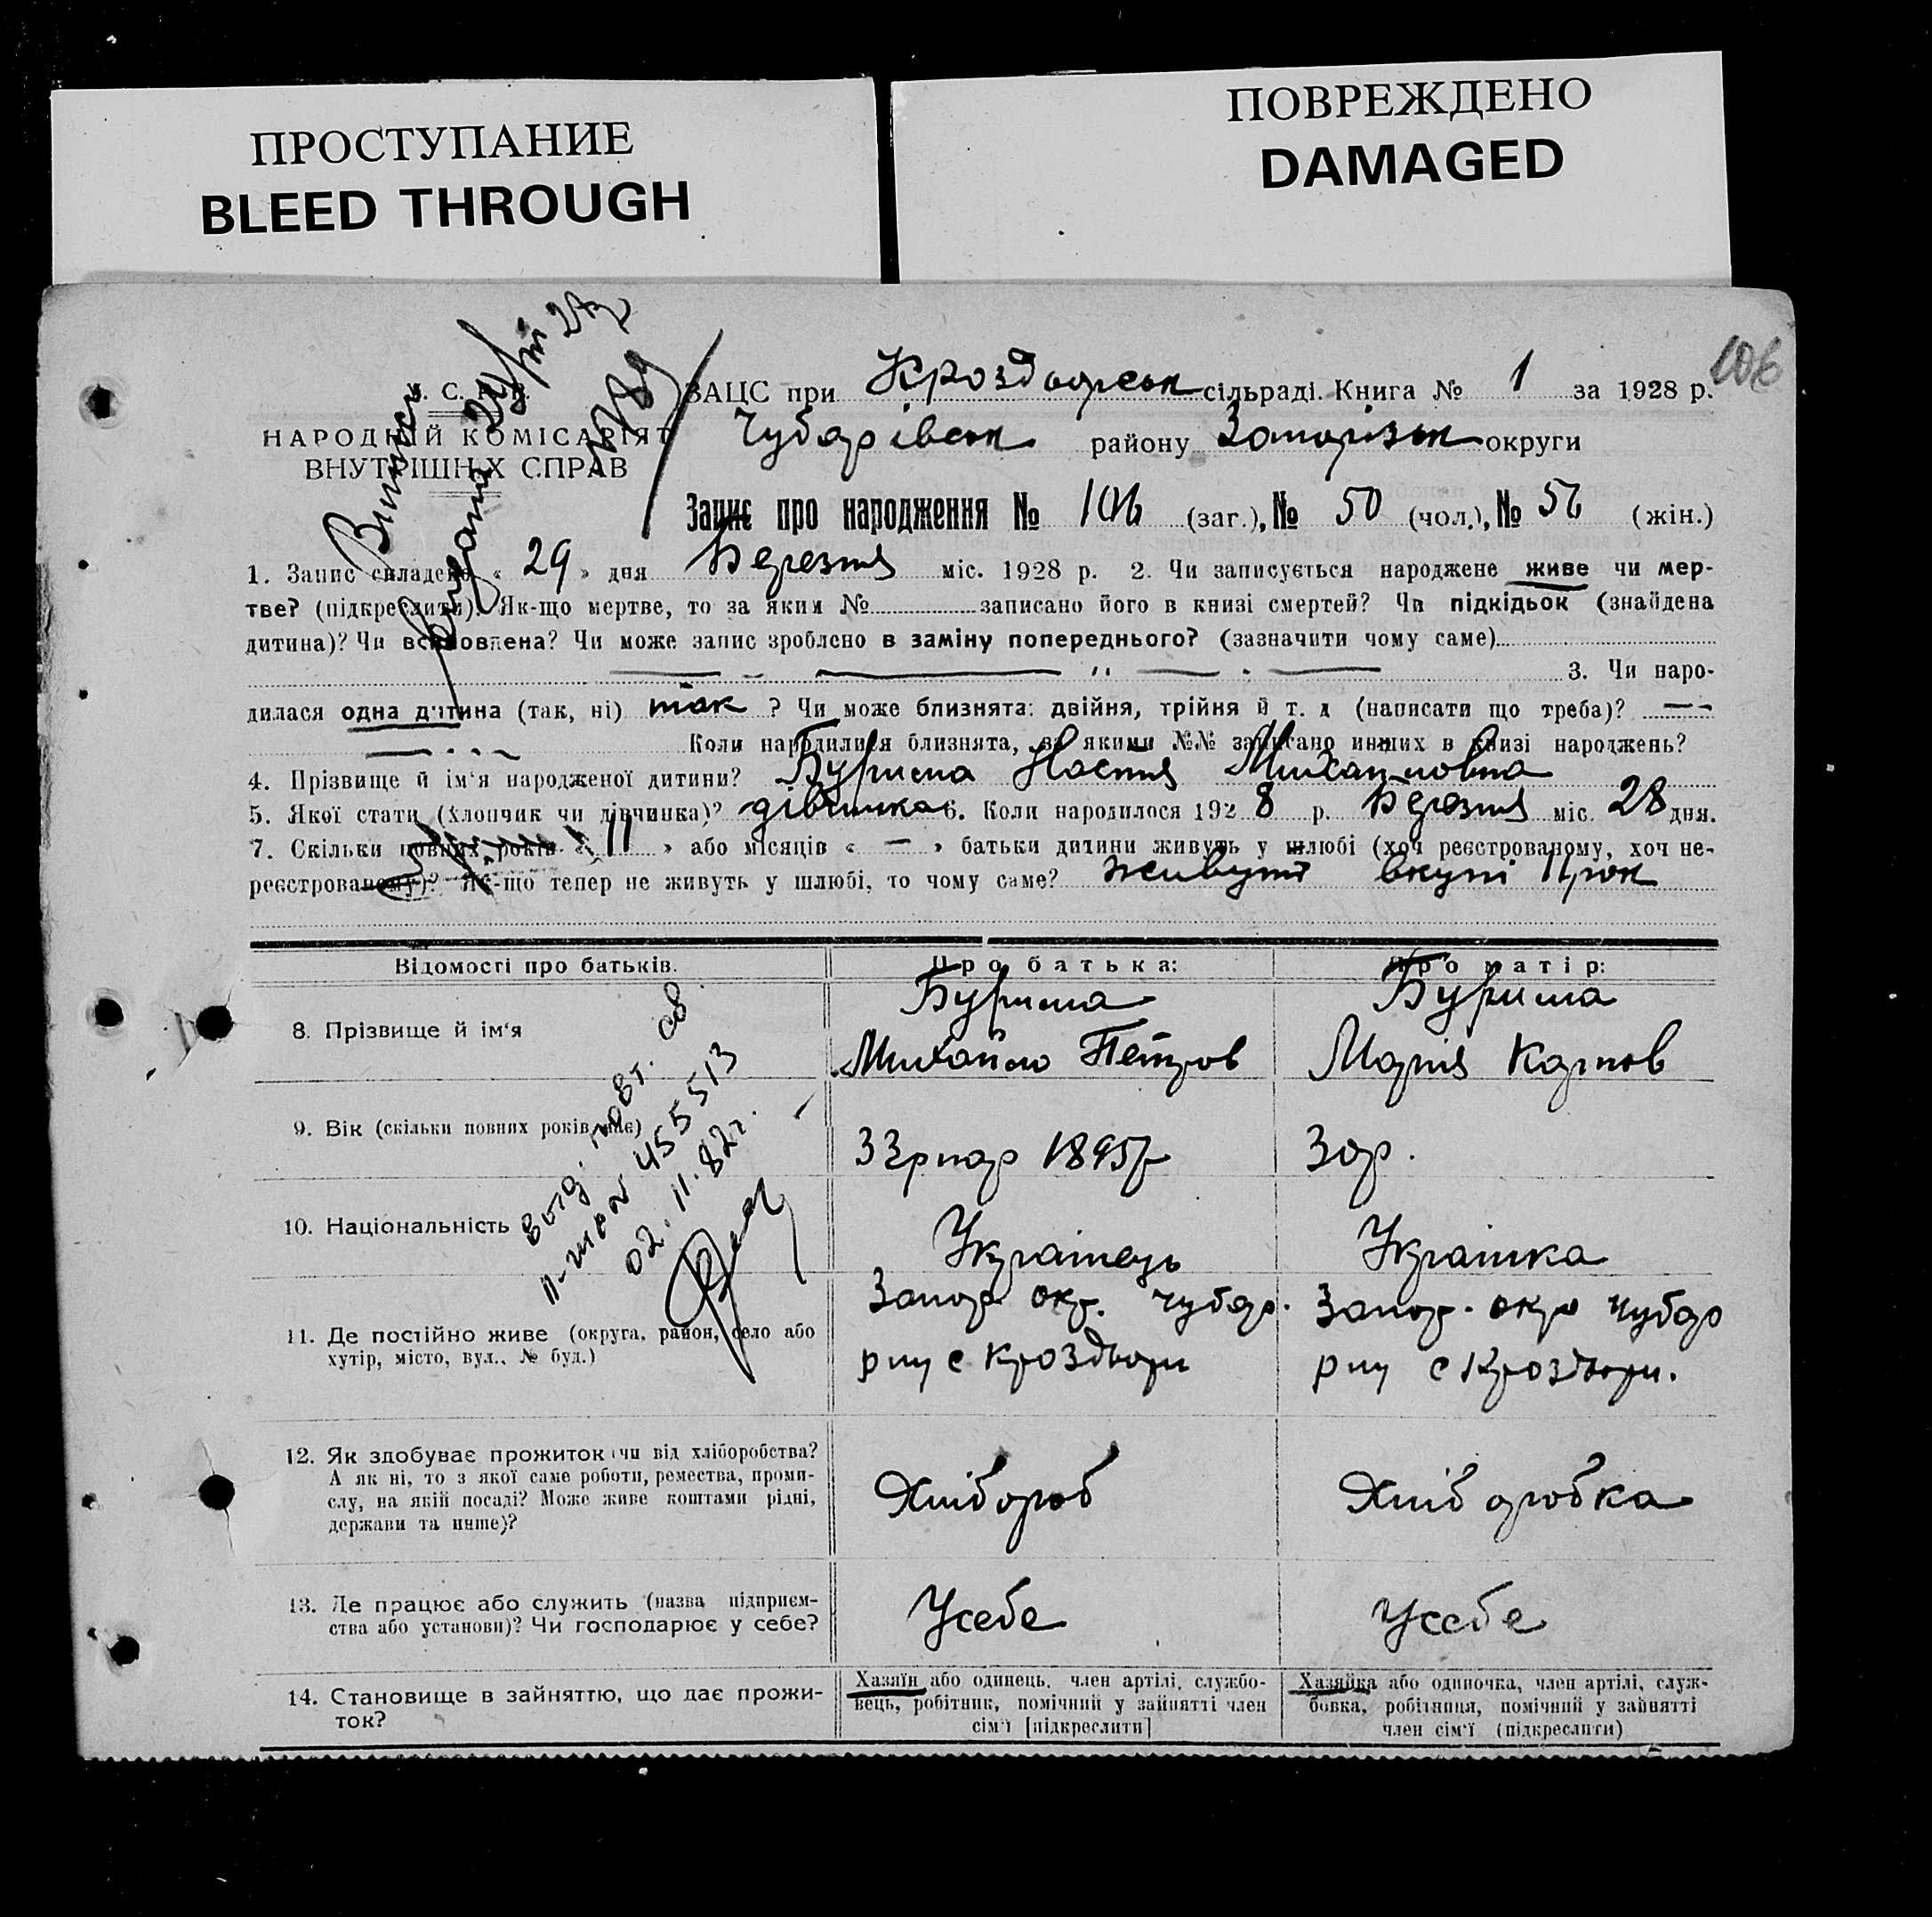 ПРОСТУПАНИЕ
BLEED THROUGH
ПОВРЕЖДЕНО
DAMAGED
106
У. С. Р. Р.
НАРОДНІЙ КОМІСАРІЯТ
ВНУТРІШНІХ СПРАВ
ЗАЦС при Кроздворськ сільраді. Книга № 1 за 1928 р.
Чубарівськ району Запорізьк округи
Запис про народження № 106 (заг.), № 50 (чол.), № 56 (жін.)
1. Запис складено « 29 » дня Березня міс. 1928 р. 2. Чи записується народжене живе чи мер-
тве? (підкреслити). Як-що мертве, то за яким № записано його в книзі смертей? Чи підкідьок (знайдена
дитина)? Чи всиновлена? Чи може запис зроблено в заміну попереднього? (зазначити чому саме)
3. Чи наро-
дилася одна дитина (так, ні) так ? Чи може близнята: двійня, трійня й т. д (написати що треба)? —
Коли народилися близнята, за якими №№ записано инших в книзі народжень?
4. Прізвище й ім'я народженої дитини? Бурима Настя Михайловна
5. Якої стати (хлопчик чи дівчинка)? дівчинка 6. Коли народилося 1928 р. Березня міс. 28 дня.
7. Скільки повних років « 11 » або місяців « — » батьки дитини живуть у шлюбі (хоч реєстрованому, хоч не-
реєстрованому)? Як-що тепер не живуть у шлюбі, то чому саме? живуть вкупі 11 рок
Відомості про батьків. Про батька: Про матір:
8. Прізвище й ім'я
Бурима
Михайло Петров
Бурима
Марія Карпов
9. Вік (скільки повних років має)
33р нар 1895р
30р.
10. Національність
Українець
Українка
11. Де постійно живе (округа, район, село або
хутір, місто, вул., № буд.)
Запор окр. Чубар.
рну с Кроздвори
Запор. окр Чубар
рну с Кроздвори.
12. Як здобуває прожиток (чи від хліборобства?
А як ні, то з якої саме роботи, ремества, проми-
слу, на якій посаді? Може живе коштами рідні,
держави та инше)?
Хлібороб
Хліборобка
13. Де працює або служить (назва підприєм-
ства або установи)? Чи господарює у себе?
У себе
У себе
14. Становище в зайняттю, що дає прожи-
ток?
Хазяїн або одинець, член артілі, службо-
вець, робітник, помічний у зайнятті член
сім'ї [підкреслити]
Хазяйка або одиночка, член артілі, служ-
бовка, робітниця, помічний у зайнятті
член сім'ї (підкреслити)
выд. повт. св.
II-жс № 455513
02.11.82г.